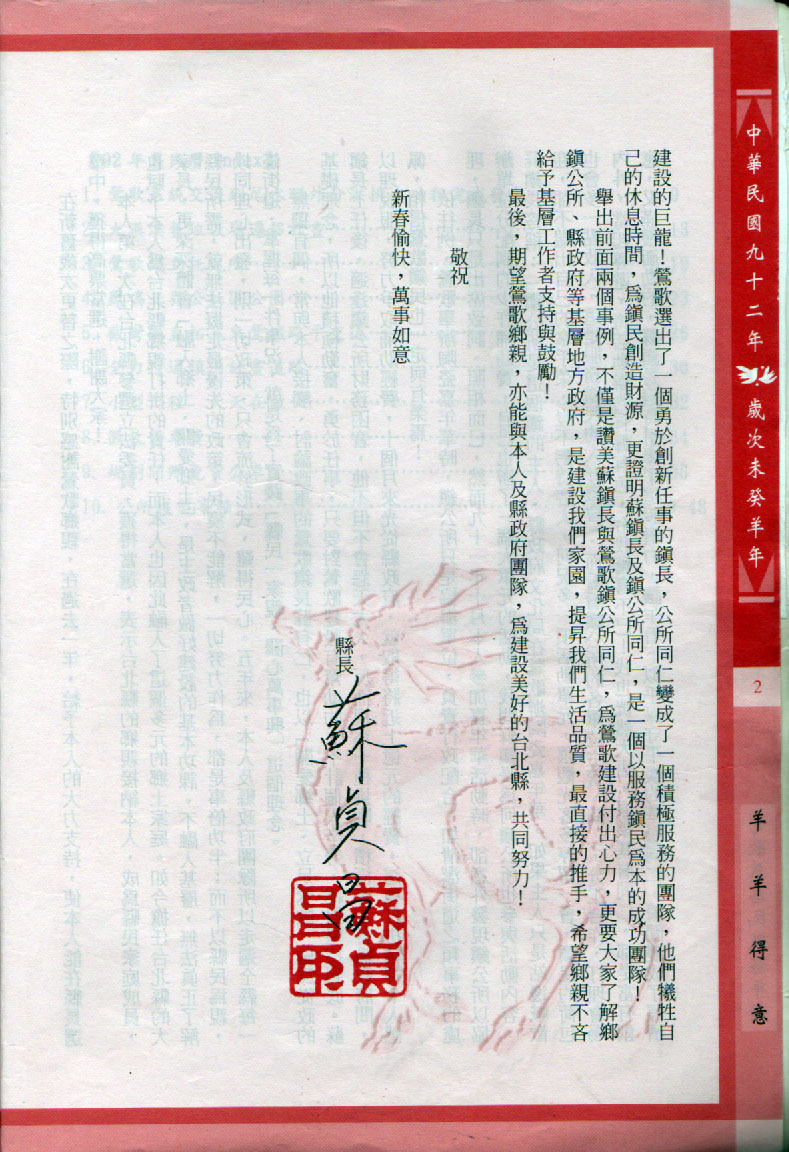 中華民國九十二年
歲次未癸羊年
2
羊羊得意
建設的巨龍！鶯歌選出了一個勇於創新任事的鎮長，公所同仁變成了一個積極服務的團隊，他們犧牲自
己的休息時間，為鎮民創造財源，更證明蘇鎮長及鎮公所同仁，是一個以服務鎮民為本的成功團隊！
舉出前面兩個事例，不僅是讚美蘇鎮長與鶯歌鎮公所同仁，為鶯歌建設付出心力，更要大家了解鄉
鎮公所、縣政府等基層地方政府，是建設我們家園，提昇我們生活品質，最直接的推手，希望鄉親不吝
給予基層工作者支持與鼓勵！
最後，期望鶯歌鄉親，亦能與本人及縣政府團隊，為建設美好的台北縣，共同努力！
敬祝
新春愉快，萬事如意
縣長 蘇貞昌
蘇貞昌印